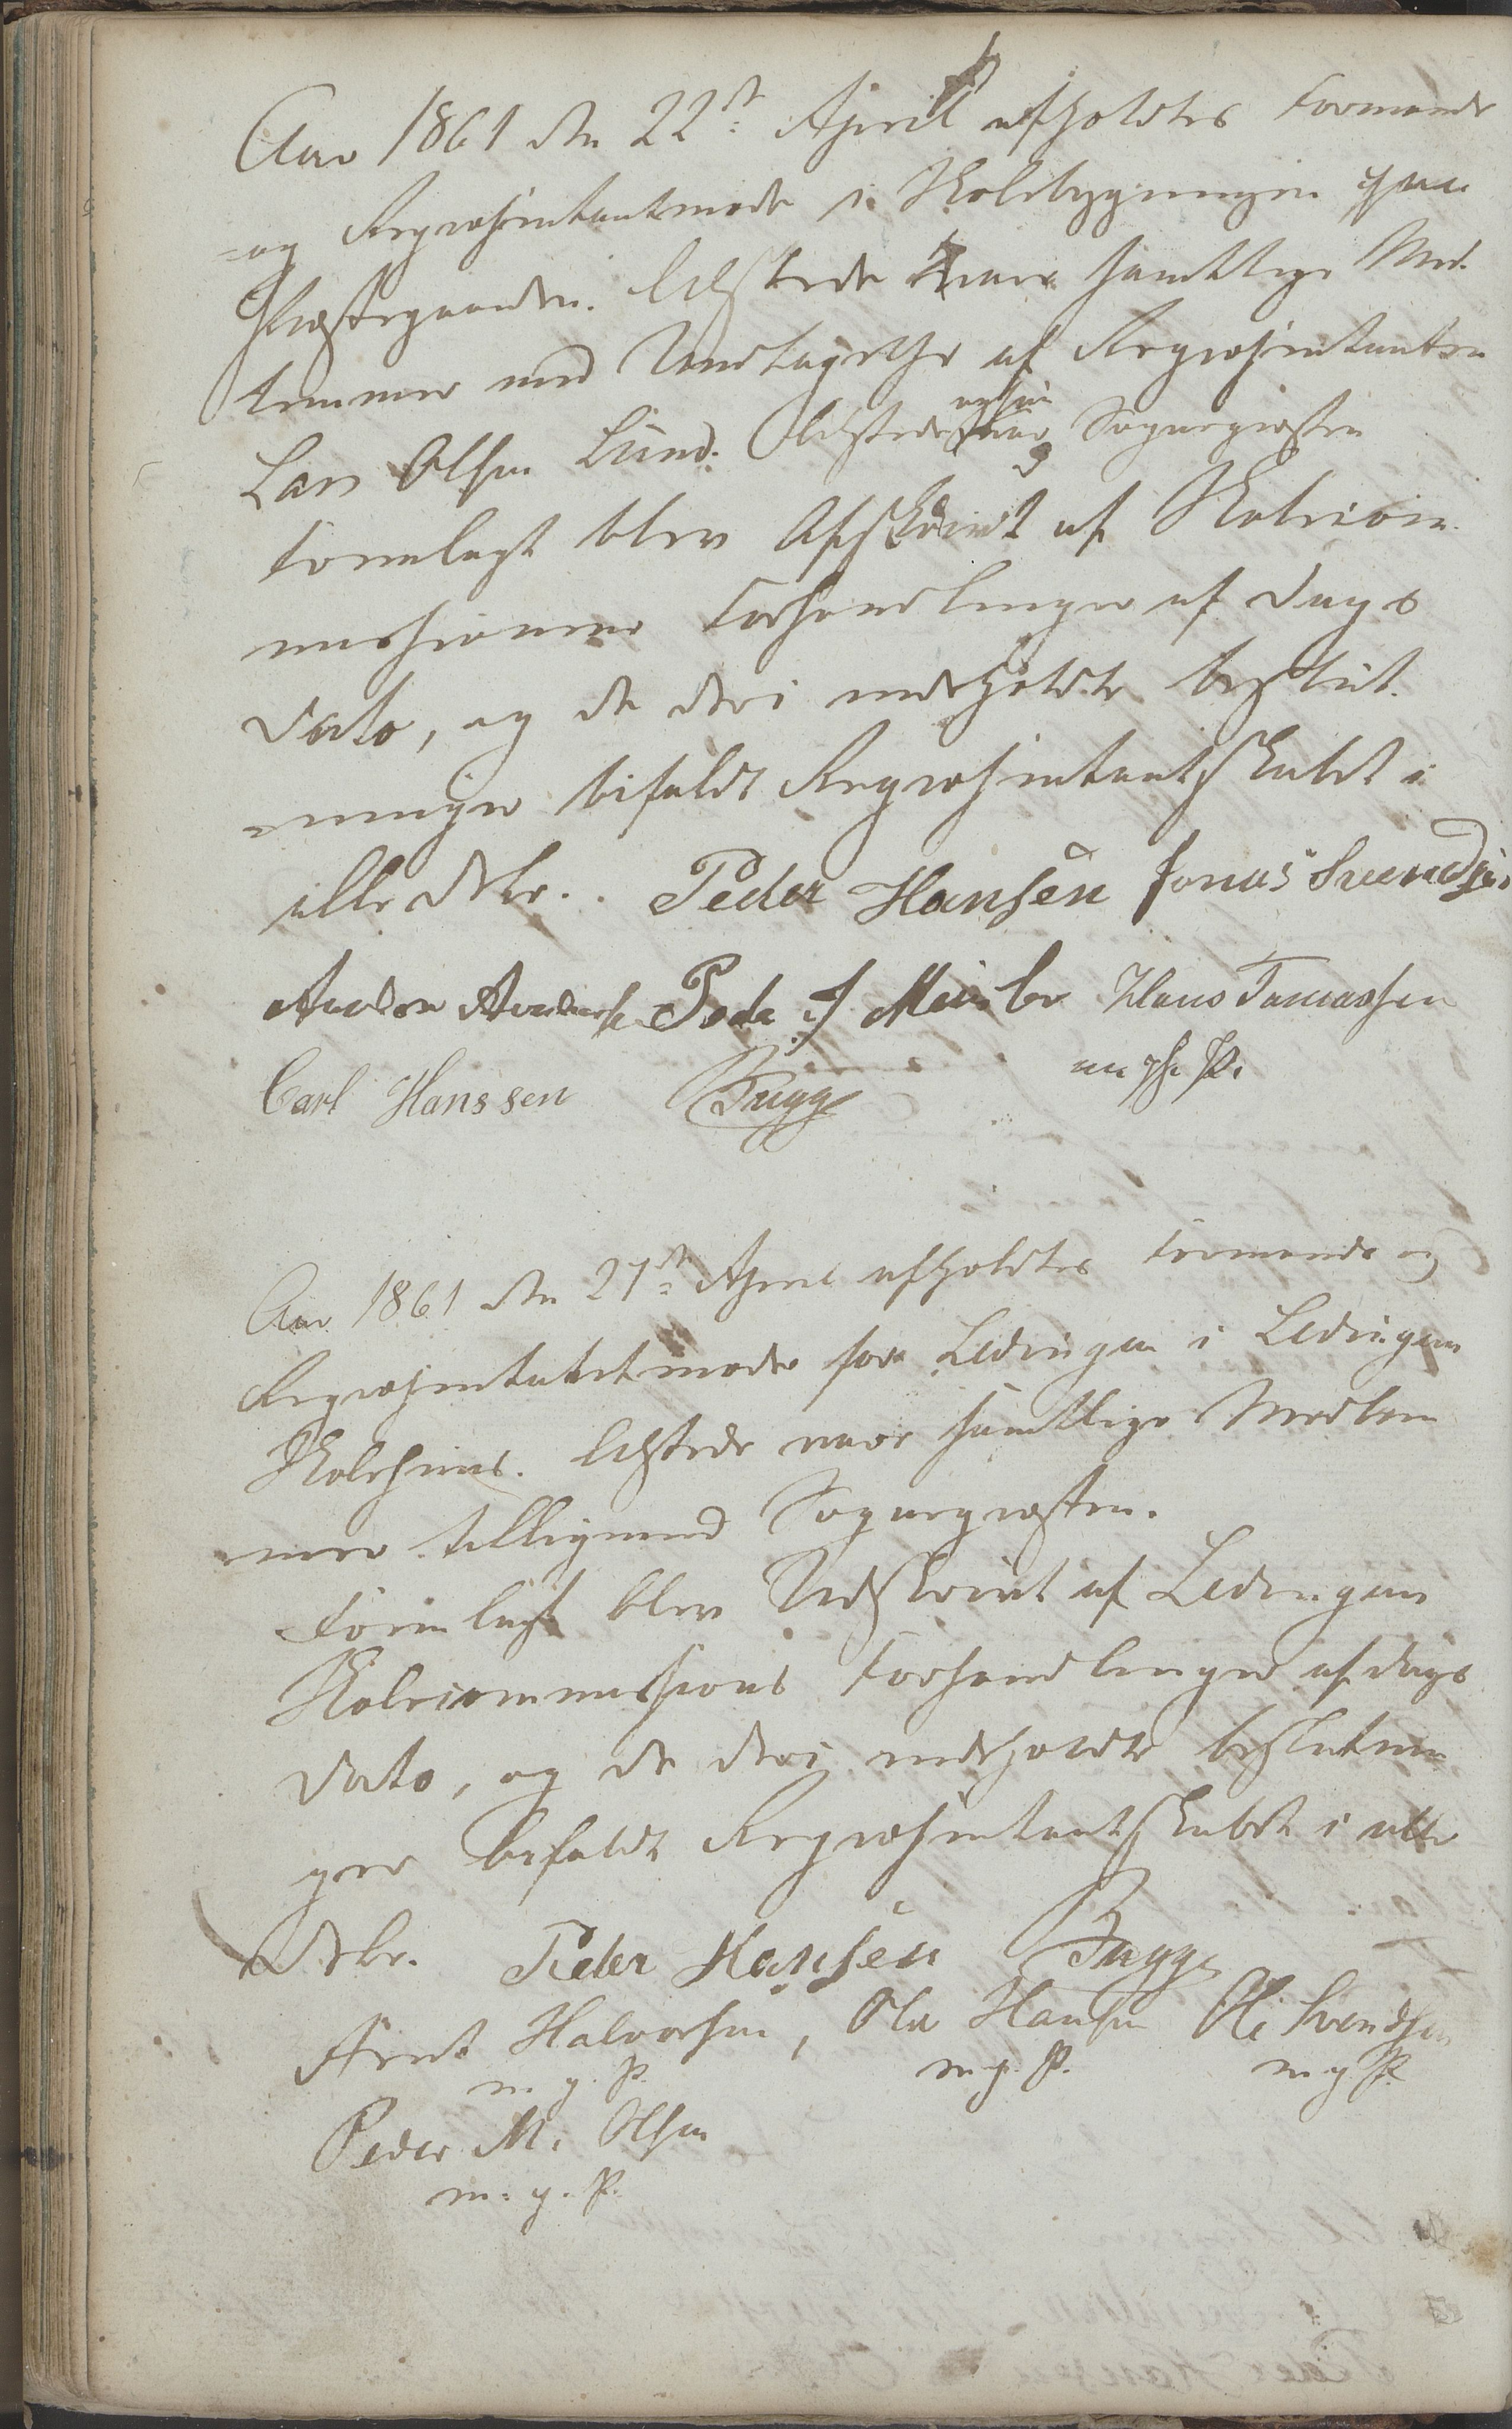 Aar 1861 den 22de April afholdtes Formands
og Repræsentantmøde i Skolebygningen paa
Præstegaarden. Tilstede vare samtlige Med-
lemmer med Undtagelse af Repræsentanten
Lars Olsen Lund. Tilstede ogsaa var Sognepræsten
Foredlagt blev Afskrivt af Skolecom-
missionens Forhandlinger af Dags
Dato, og de deri indeholdte beslut-
ninger bifaldt Repræsentantskabet i
alle Dele. Peder Hansen Jonas Svendsen
Anders Andersen Peder J Hans Tomassen
Carl Hanssen Bugge m p P.
Aar 1861 den 27de April afholdtes Formands og
Repræsentantmøde for Lødingen i Lødingens
Skolehuus. Tilstede vare samtlige Medlem
mer tilligemed Sognepræsten.
Foredlagt blev Udskrivt af Lødingens
Skolecommissions Forhandlinger af Dags
Dato, og de deri indeholdte beslutnin
ger bifaldt Repræsentantskabet i alle
Dele. Peder Hansen Bugge
Arnt Halvorsen, Ole Hansen Ole Svendsen
m. p. P. m. p. P. m p P.
Peder M. Olsen
m. p. P.